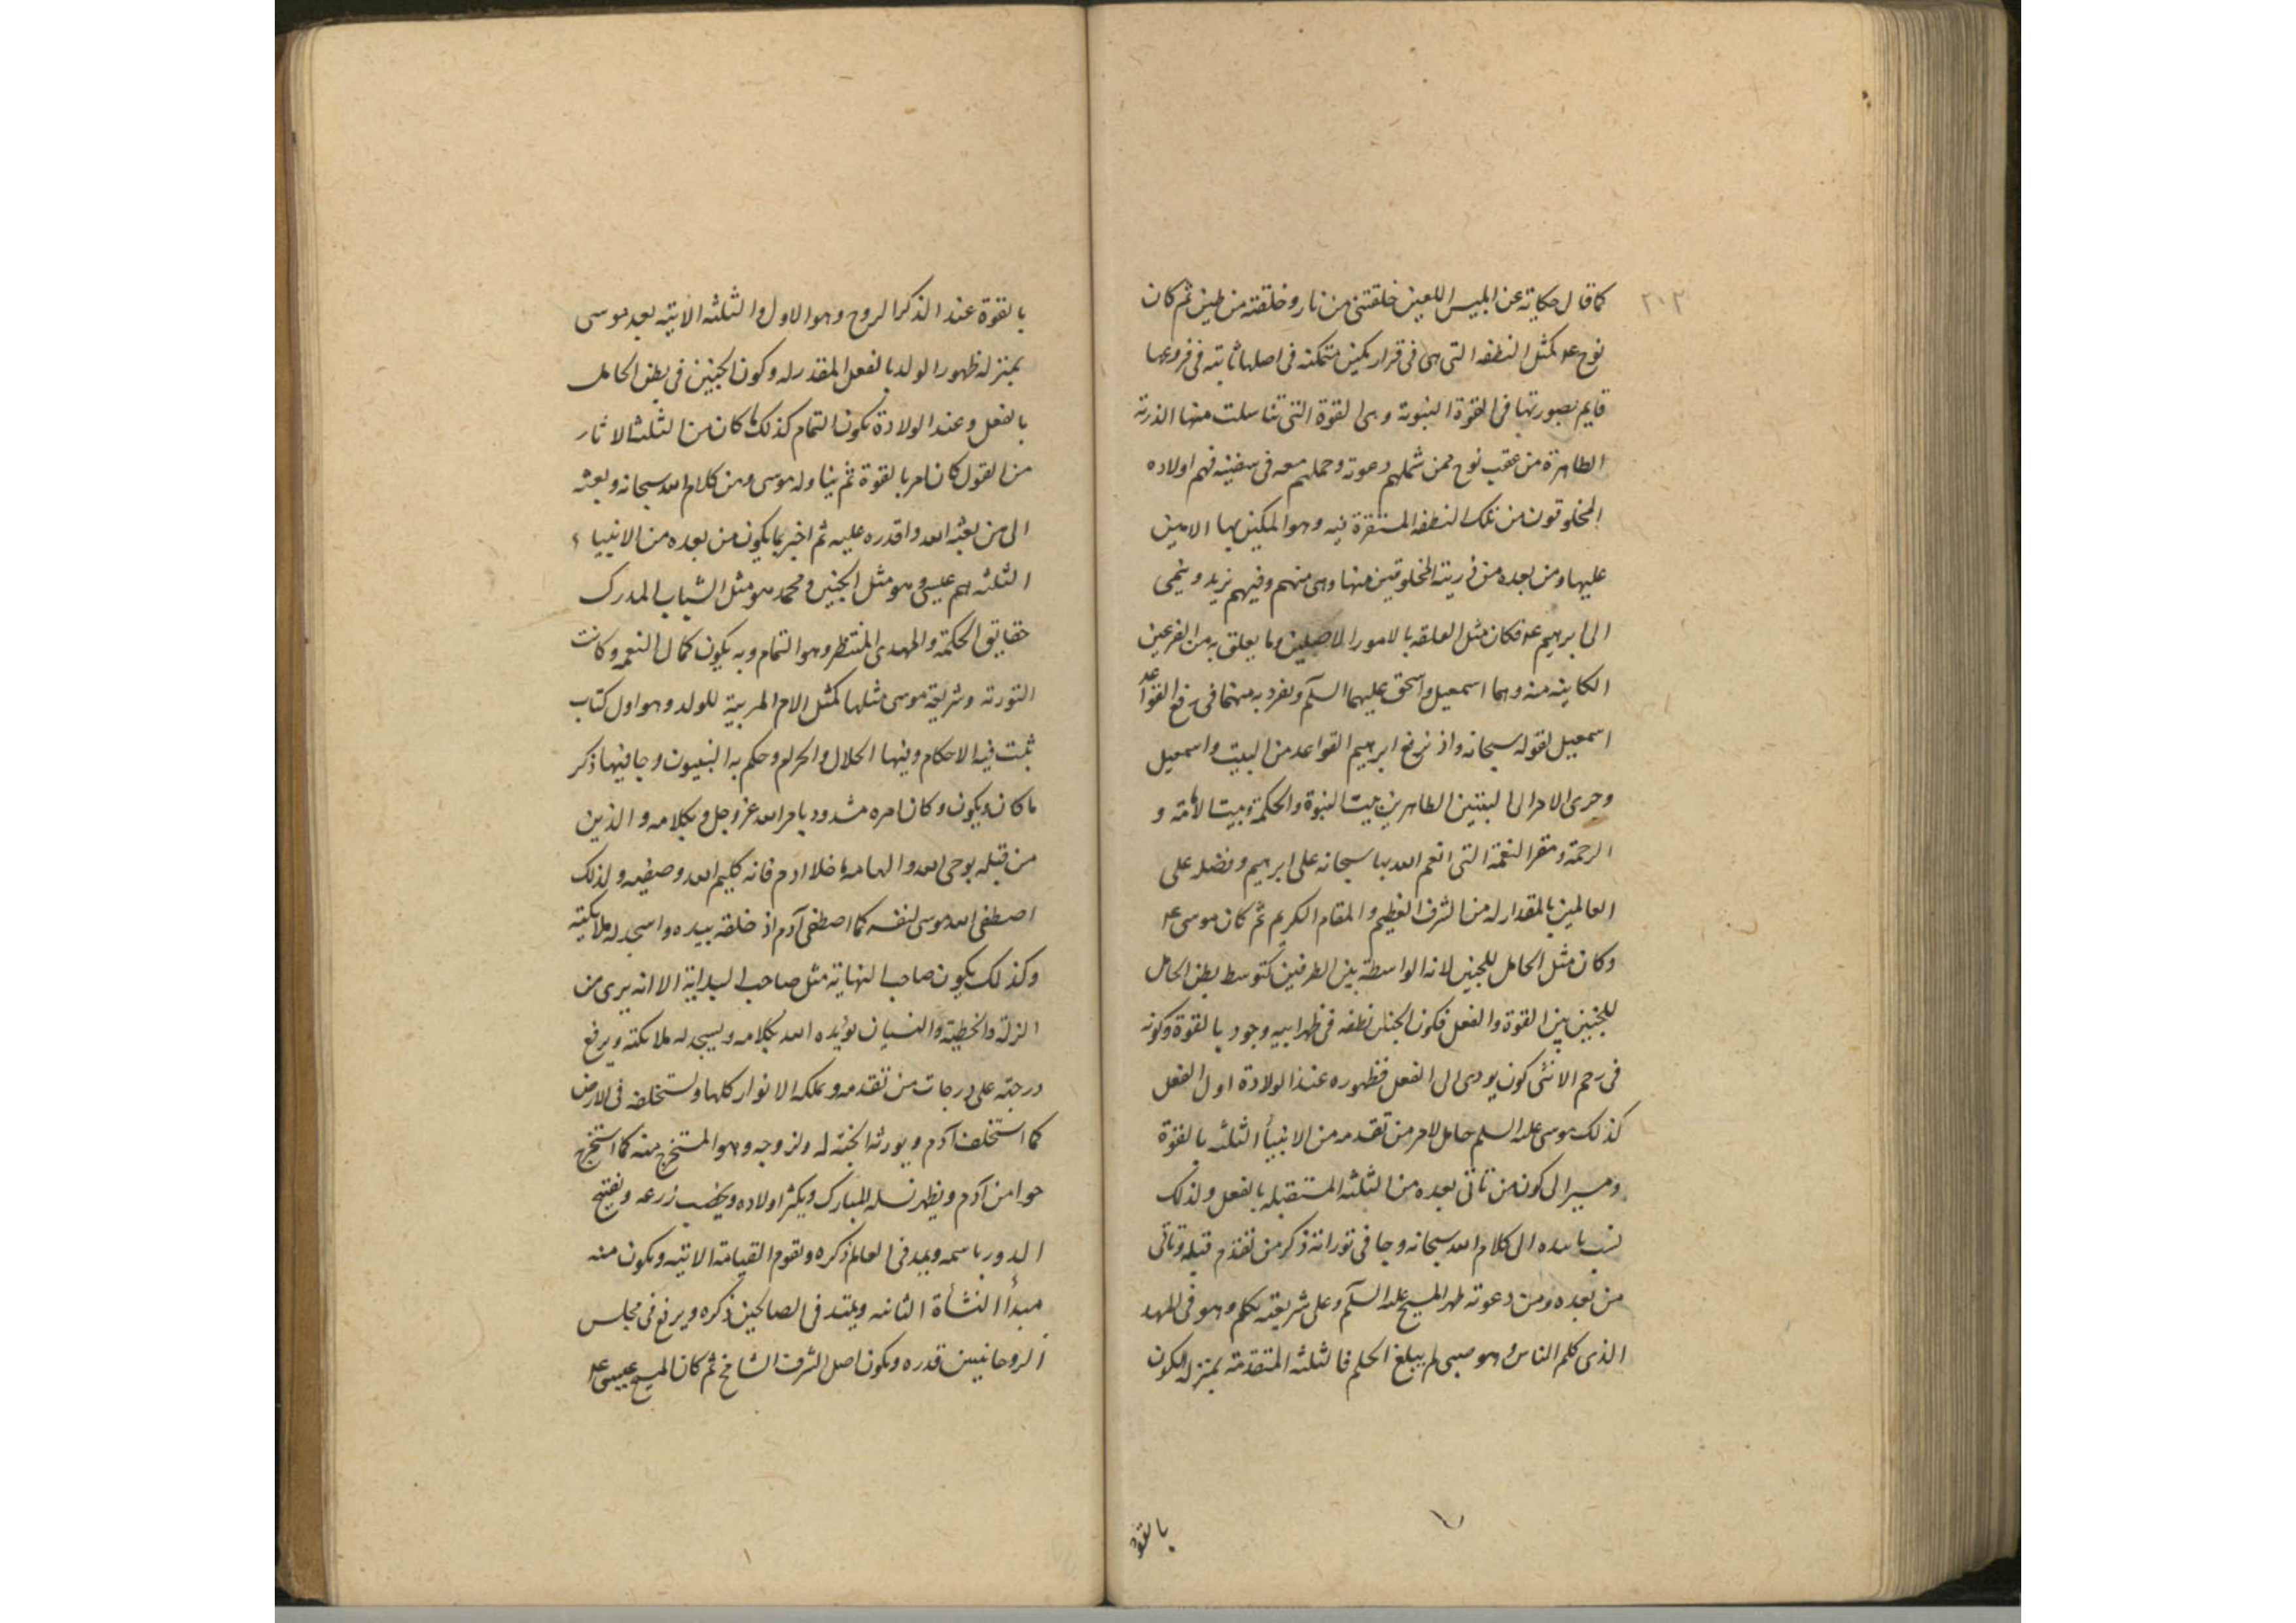 ٢٠٣
كما قال حكاية عن ابليس اللعين خلقتنى من نار وخلقته من طين ثم كان
نوح عم كمثل النطفه التى هى فى قرار مكين متمكنه فى اصلها ثابته فى فروعها
قايم بصورتها فى القوة النبوية وهى القوة التى تناسلت منها الذرية
الطاهرة من عقب نوح ممن شملهم دعوته وحملهم معه فى سفينه فهم اولاده
المخلوقون من تلك النطفه المستقرة فيه وهو المكين بها الامين
عليها ومن بعده من ذريته المخلوقين منها وهى منهم وفيهم يزيد وينمى
الى ابرهيم عم فكان مثل العلقه بالامور الاصلين وما يعلق به من الفرعين
الكاينه منه وهما اسمعيل واسحق عليهما السلم وتفرد به منهما فى رفع القواعد
اسمعيل لقوله سبحانه واذ يرفع ابرهيم القواعد من البيت واسمعيل
وجرى الامر الى البيتين الطاهرين بيت النبوة والحكمة وبيت الامة و
الرحمة ومقر النعمة التى انعم الله بها سبحانه على ابرهيم وفضله على
العالمين بالمقدار له من الشرف العظيم والمقام الكريم ثم كان موسى عم
وكان مثل الحامل للجنين لانه الواسطة بين الطرفين كتوسط بطن الحامل
للجنين بين القوة والفعل فكون الجنين نطفه فى ظهر ابيه وجود بالقوة وكونه
فى رحم الانثى كون يودى الى الفعل فظهوره عند الولادة اول الفعل
كذلك موسى عليه السلم حامل لامر من تقدمه من الانبيأ الثلثه بالقوة
ومسيرا لكون من تاتى بعده من الثلثه المستقبله بالفعل ولذلك
الى كلام الله سبحانه وجا فى توراته ذكر من تقدم قبله وتاتى
من بعده ومن دعوته ظهر المسيح عليه السلم وعلى شريعته تكلم وهو فى المهد
الذى كلم الناس وهو صبى لم يبلغ الحلم فالثلثه المتقدمة بمنزله الكون
بالقوة
بالقوة عند الذكر الروح وهو الاول والثلثه الاتيه بعد موسى
بمنزله ظهور الولد بالفعل المقدر له وكون الجنين فى بطن الحامل
بالفعل وعند الولادة يكون التمام كذلك ما كان من الثلث الاثار
من القول كان امر بالقوة ثم يناوله موسى ومن كلام الله سبحانه وبعثه
الى من بعثه الله واقدره عليه ثم اخبر بما يكون من بعده من الانبياء
الثلثه هم عيسى وهو مثل الجنين ومحمد هو مثل الشباب المدرك
حقايق الحكمة والمهدى المنتظر وهو التمام وبه يكون كمال النعم وكانت
التورته وشريعة موسى مثلها كمثل الام المربية للولد وهو اول كتاب
ثبت فيه الاحكام وبينها الحلال والحرام وحكم به النبيون وجا فيها ذكر
ما كان ويكون وكان امره مشدود بامر الله عز وجل وبكلامه والذين
من قبله بوحى الله والهامه ما خلا ادم فانه كليم الله وصفيه ولذلك
اصطفى الله موسى لنفسه كما اصطفى آدم اذ خلقه بيده واسجد له ملايكته
وكذلك يكون صاحب النهاية مثل صاحب البداية الا انه برى من
الزلة والخطية والنسيان يؤيده الله بكلامه ويسجد له ملايكته ويرفع
درجته على درجات من تقدمه ويملكه الانوار كلها ويستخلفه فى الارض
كما استخلف آدم ويورثه الجنة له ولزوجه وهو المستخرج منه كما استخرج
حوا من آدم ويظهر نسله المبارك ويكثر اولاده ويخصب زرعه ويفتتح
الدور باسمه ويبد فى العالم ذكره وتقوم القيامة الاتيه وتكون منه
مبدأ النشأة الثانيه ويمتد فى الصالحين ذكره ويرفع فى مجلس
الروحانيين قدره ويكون اصل الشرف الشامخ ثم كان المسيح عيسى عم